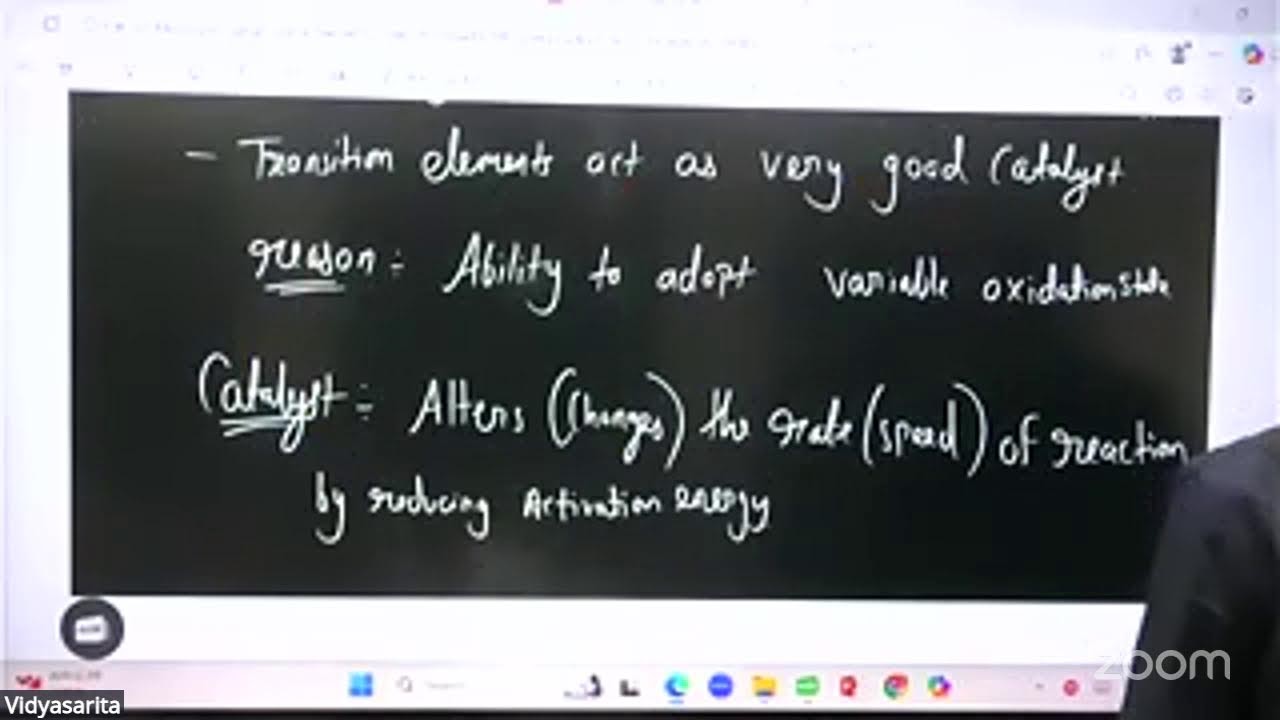 - Transition elements act as very good Catalyst
reason :- Ability to adopt variable oxidation state
Catalyst :- Alters (Changes) the rate (speed) of reaction
by reducing Activation energy
zoom
Vidyasarita